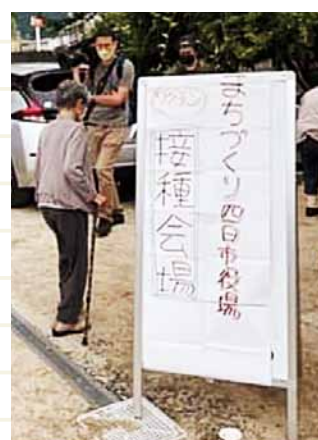 まちづくり四日市役場
ワクチン
接種会場